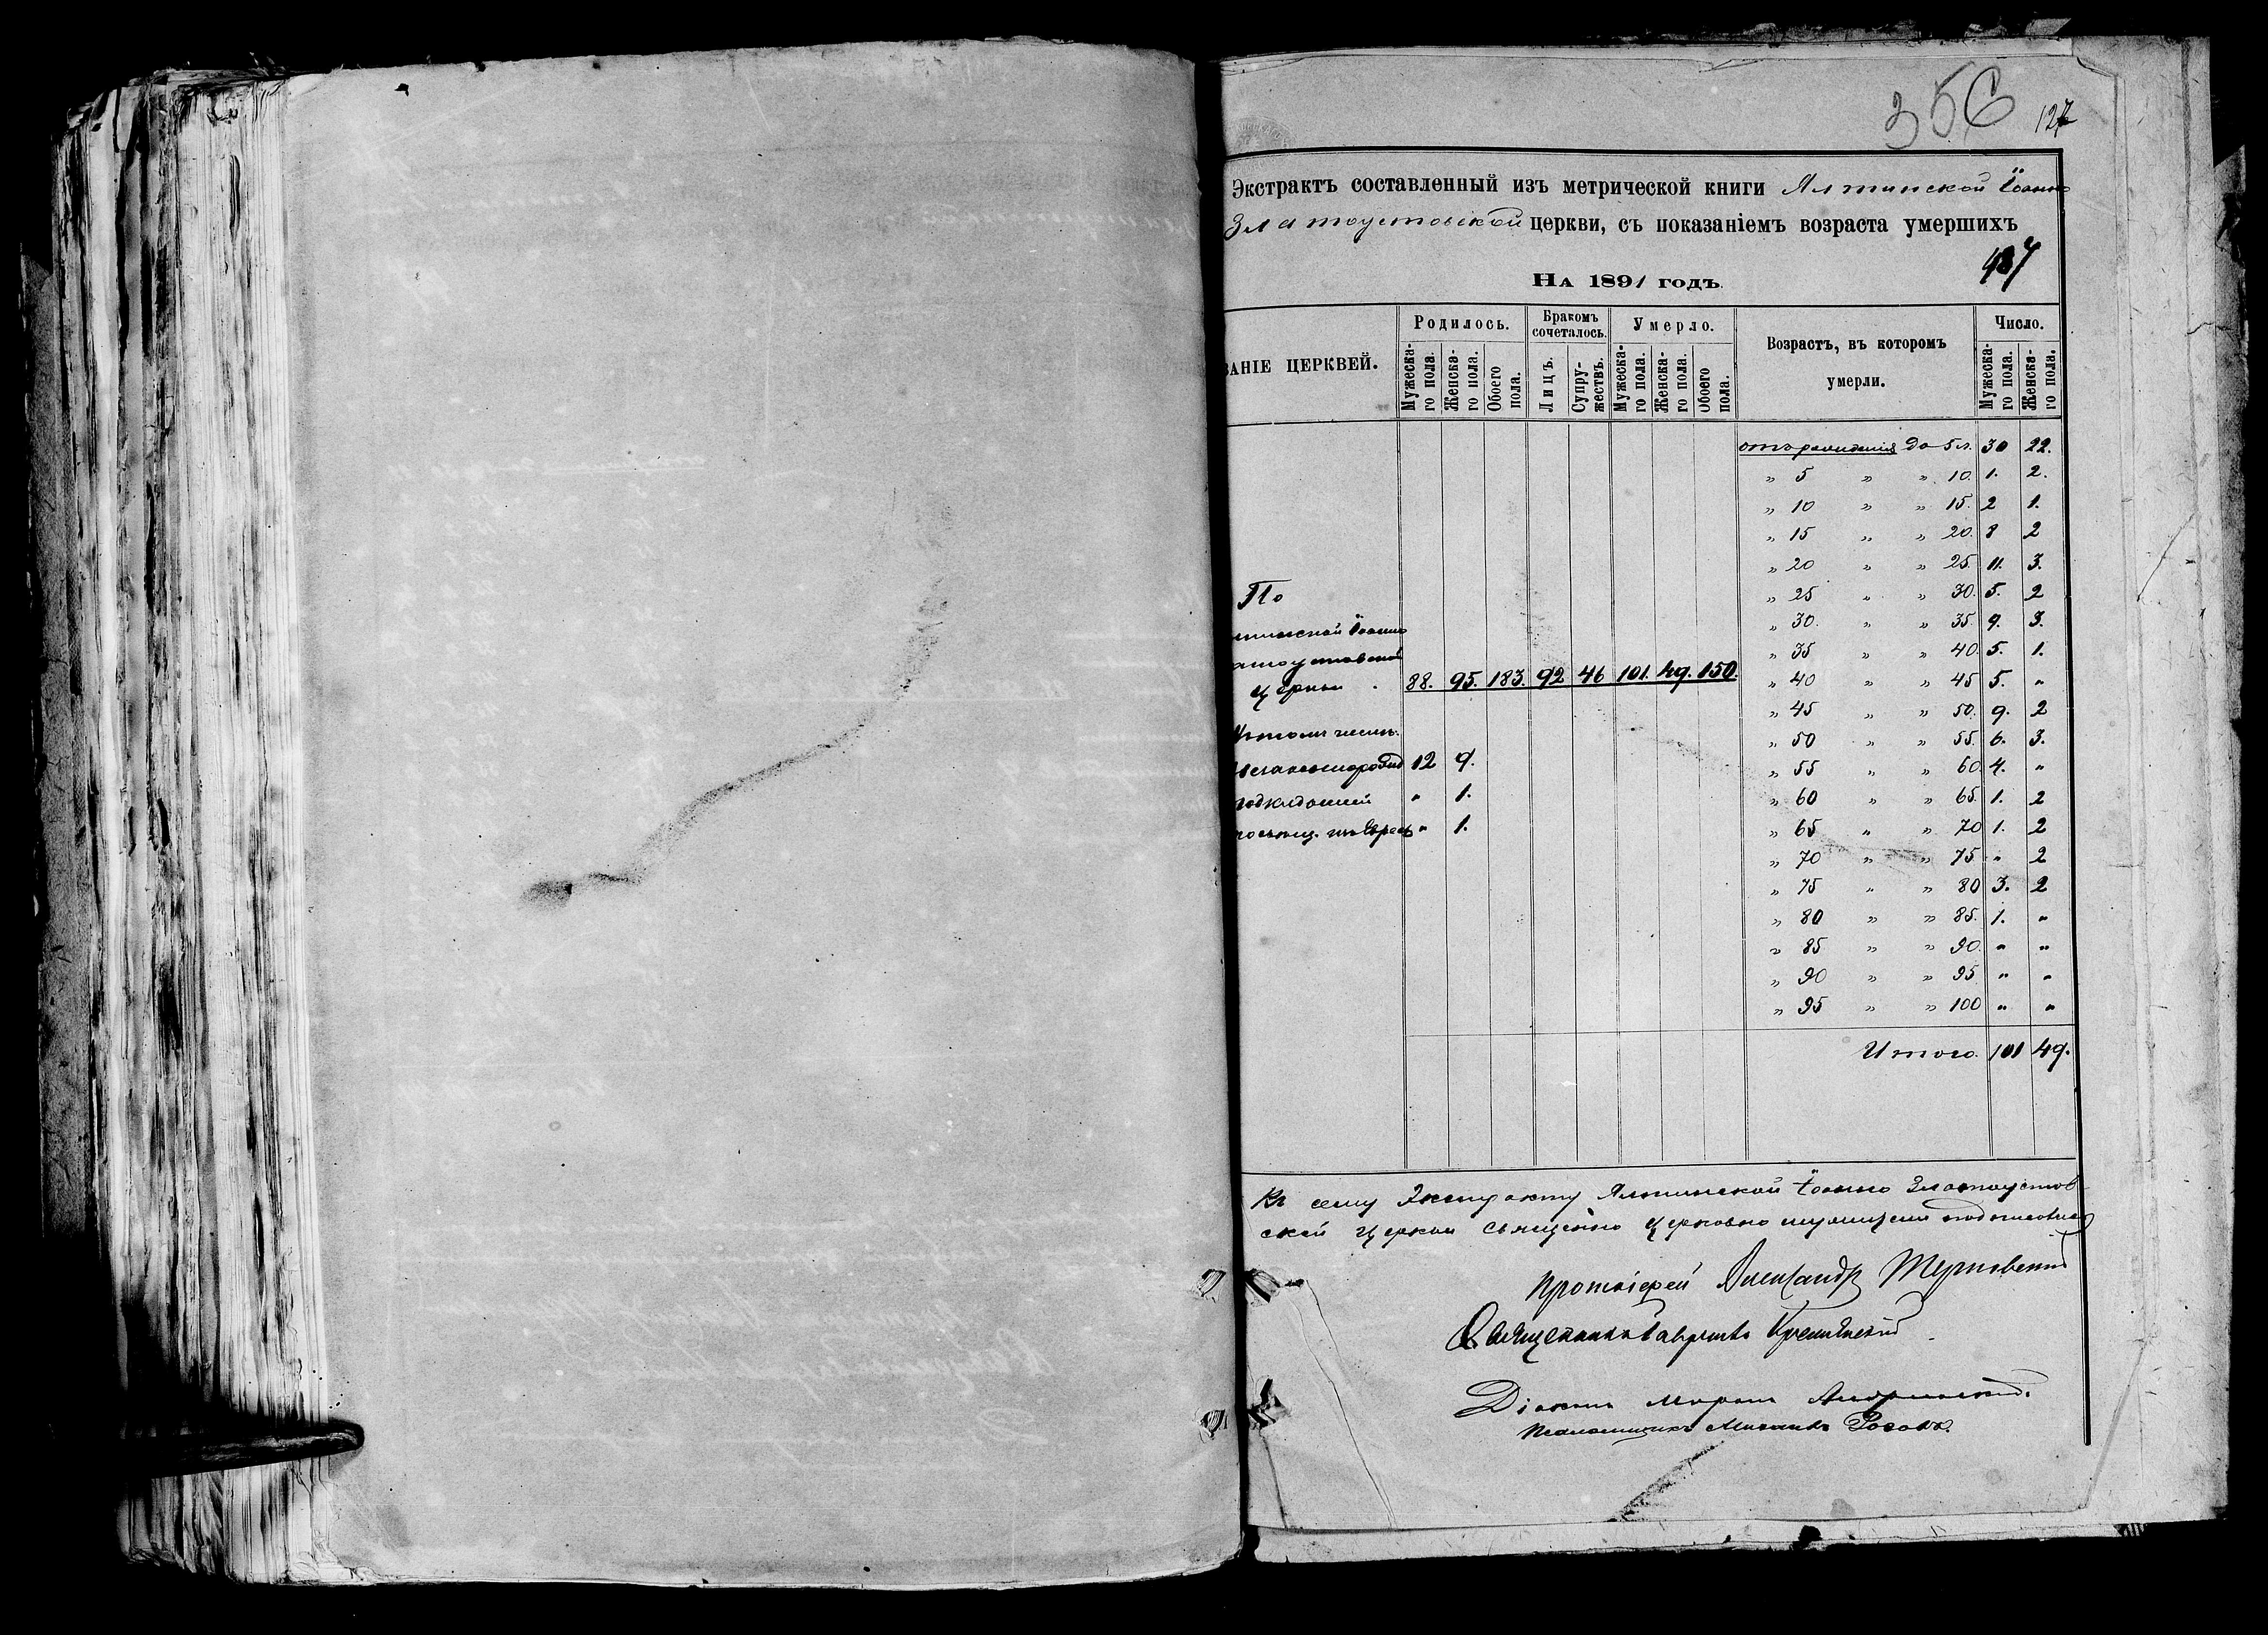 356 127
Экстрактъ составленный изъ метрической книги Ялтинской Іоанно
Златоустовской церкви, съ показаніемъ возраста умершихъ
487
На 1891 годъ.
ВАНІЕ ЦЕРКВЕЙ.
Родилось.
Мужеска-го пола.
Женска-го пола.
Обоего пола.
Бракомъ сочеталось.
Лицъ.
Супру-жествъ.
Умерло.
Мужеска-го пола.
Женска-го пола.
Обоего пола.
Возрастъ, въ которомъ умерли.
Число.
Мужеска-го пола.
Женска-го пола.
отъ рожденія до 5 л. 30 22.
„ 5 „ „ 10. 1. 2.
„ 10 „ „ 15. 2 1.
„ 15 „ „ 20. 8 2
„ 20 „ „ 25. 11. 3.
„ 25 „ „ 30. 5. 2
„ 30. „ „ 35. 9. 3.
„ 35 „ „ 40. 5. 1.
„ 40 „ „ 45 5. „
„ 45 „ „ 50. 9. 2
„ 50 „ „ 55. 6. 3.
„ 55 „ „ 60. 4. „
„ 60 „ „ 65. 1. 2
„ 65 „ „ 70 1. 2
„ 70 „ „ 75 „ 2
„ 75 „ „ 80 3. 2
„ 80 „ „ 85. 1. „
„ 85 „ „ 90. „ „
„ 90 „ „ 95 „ „
„ 95 „ „ 100 „ „
Итого. 101 49.
По
тинской Іоанно
атоустовской
церкви 88. 95. 183. 92 46 101. 49. 150.
томъ числѣ
12 9.
„ 1.
„ 1.
Къ сему Экстракту Ялтинской Іоанно Златоустов
ской церкви священно церковно служители подписались
Протоіерей Александръ Терновский
Священникъ Гавриилъ
Діаконъ
Псаломщикъ Михаилъ